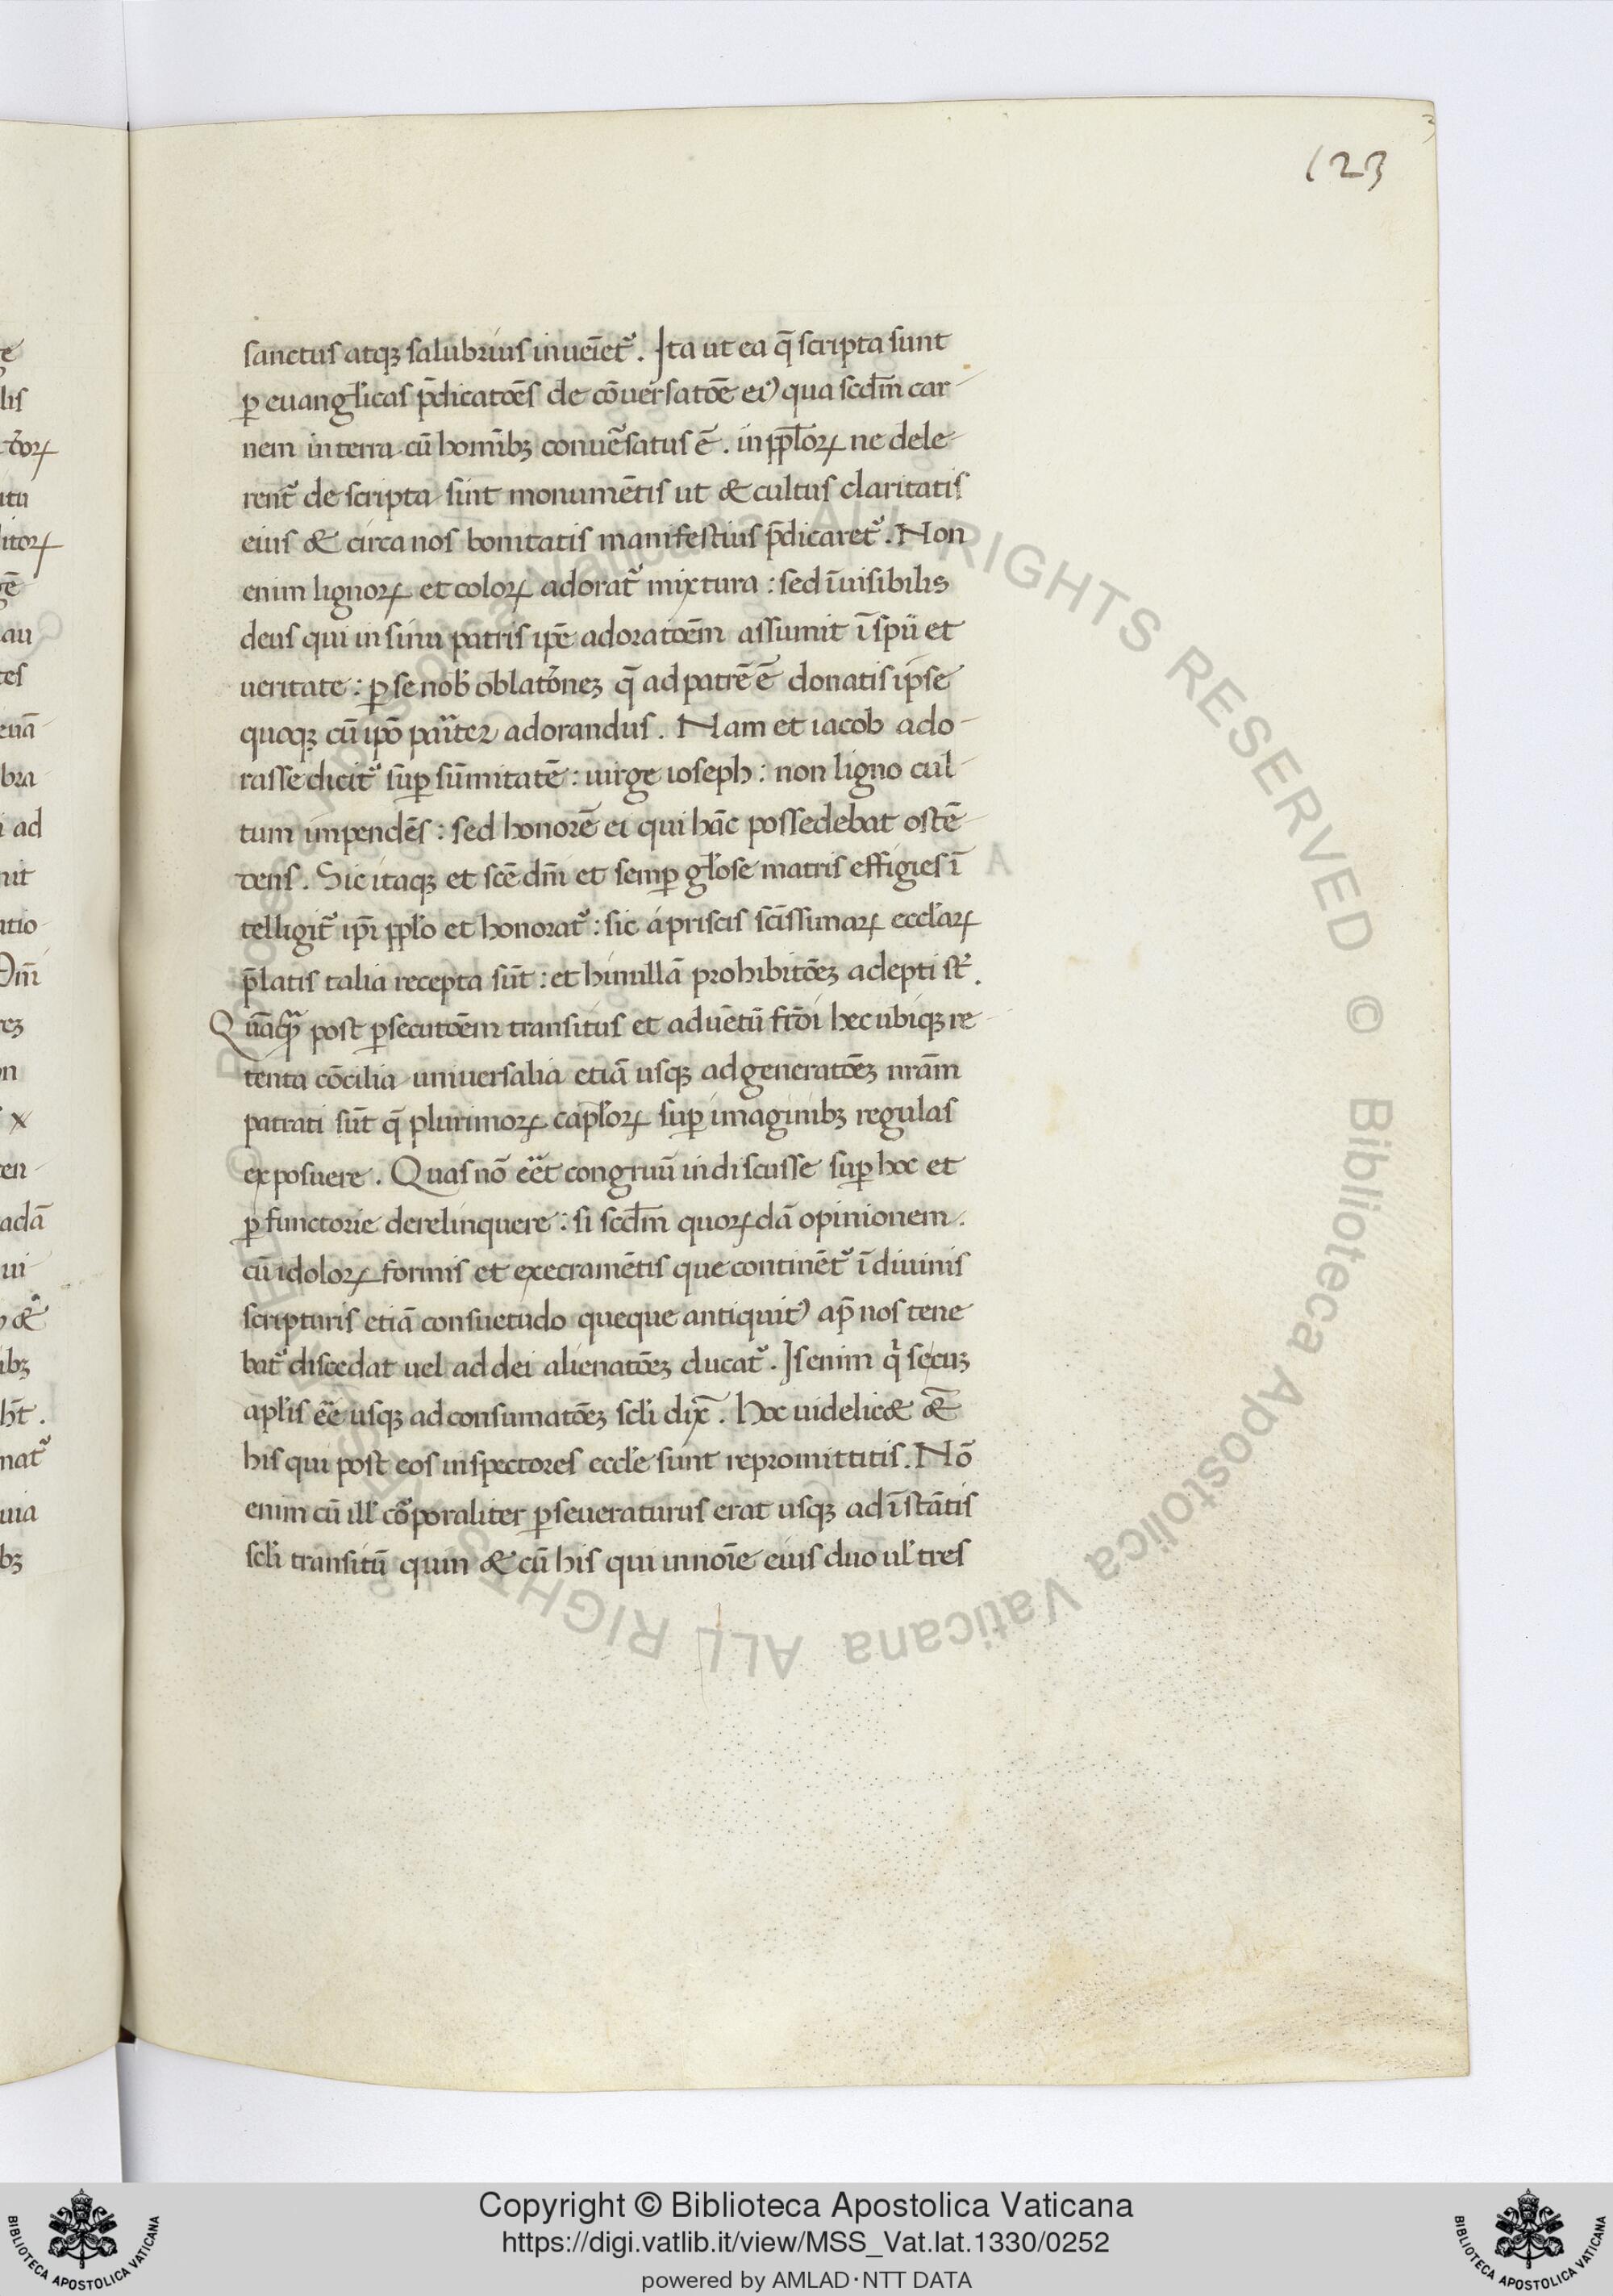 123
sanctus atqꝫ salubrius inueīet᷑. Ita ut ea q̄ scripta sunt
ꝑ euangl̓icas p̄dicatōes de cōuersatōe ei᾽ qua scd̄m car-
nem in terra cū homībꝫ conuēsatus ē. in ppl̓oꝝ ne dele-
rent᷑ de scripta sunt monumētis ut & cultus claritatis
eius & circa nos bonitatis manifestius p̄dicaret᷑. Non
enim lignoꝝ et coloꝝ adorat᷑ mixtura: sed īuisibilis
deus qui in sinu patris ip̄e adoratōem assumit ī sp̄u et
ueritate: ꝑ se nob̓ oblatōneꝫ q̄ ad patrē ē donatis ipse
quoqꝫ cū ip̄o pariter adorandus. Nam et iacob ado-
rasse dicit᷑ suꝑ sūmitatē: uirge ioseph: non ligno cul-
tum impendēs: sed honorē ei qui hāc possedebat ostē-
dens. Sic itaqꝫ et scē dn̄i et semꝑ gl̓ose matris effigies ī
telligit᷑ ip̄i ppl̓o et honorat᷑: sic á priscis scīssimaꝝ eccl̓aꝝ
p̄latis talia recepta sūt: et hi nullā prohibitōeꝫ adepti st̄.
Quāqꝫ post ꝑsecutōem transitus et aduētū fr̄ōi hec ubiqꝫ re-
tenta cōcilia uniuersalia etiā usqꝫ ad generatōeꝫ nr̄am
patrati sūt q̄ plurimoꝝ capl̓oꝝ suꝑ imaginibꝫ regulas
exposuere. Quas nō eēt congruū indiscusse suꝑ hoc et
ꝑfunctorie derelinquere: si scd̄m quoꝝdā opinionem.
cū idoloꝝ formis et execramētis que continēt᷑ ī diuinis
scripturis etiā consuetudo queque antiquit᾽ ap̄ nos tene
bat᷑ discedat uel ad dei alienatōeꝫ ducat᷑. Is enim qͥ secuꝫ
apl̓is eē usqꝫ ad consumatōeꝫ scl̓i dix̄. hoc uidelic& &̄
his qui post eos inspectores eccl̓e sunt repromittitis. Nō
enim cū ill̓ corporaliter ꝑseueraturus erat usqꝫ ad īstātis
scl̓i transitū quin & cū his qui in noīe eius duo ul̓ tres
Copyright © Biblioteca Apostolica Vaticana
https://digi.vatlib.it/view/MSS_Vat.lat.1330/0252
powered by AMLAD·NTT DATA